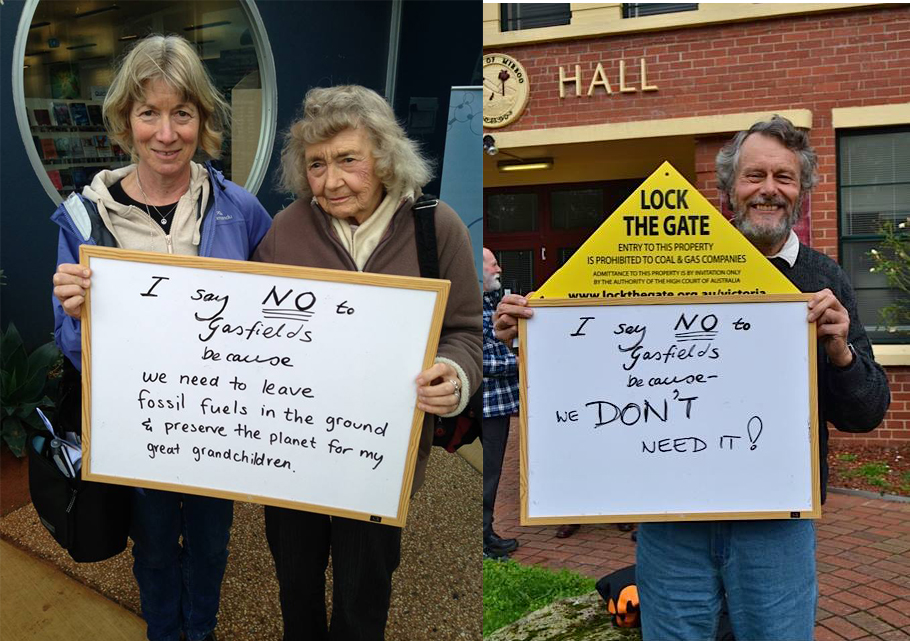 I say NO to
Gasfields
because
we need to leave
fossil fuels in the ground
& preserve the planet for my
great grandchildren.
OF MIRBOO
HALL
LOCK
THE GATE
ENTRY TO THIS PROPERTY
IS PROHIBITED TO COAL & GAS COMPANIES
ADMITTANCE TO THIS PROPERTY IS BY INVITATION ONLY
BY THE AUTHORITY OF THE HIGH COURT OF AUSTRALIA
www.lockthegate.org.au/victoria
I say NO to
Gasfields
because-
WE DON'T
NEED IT!